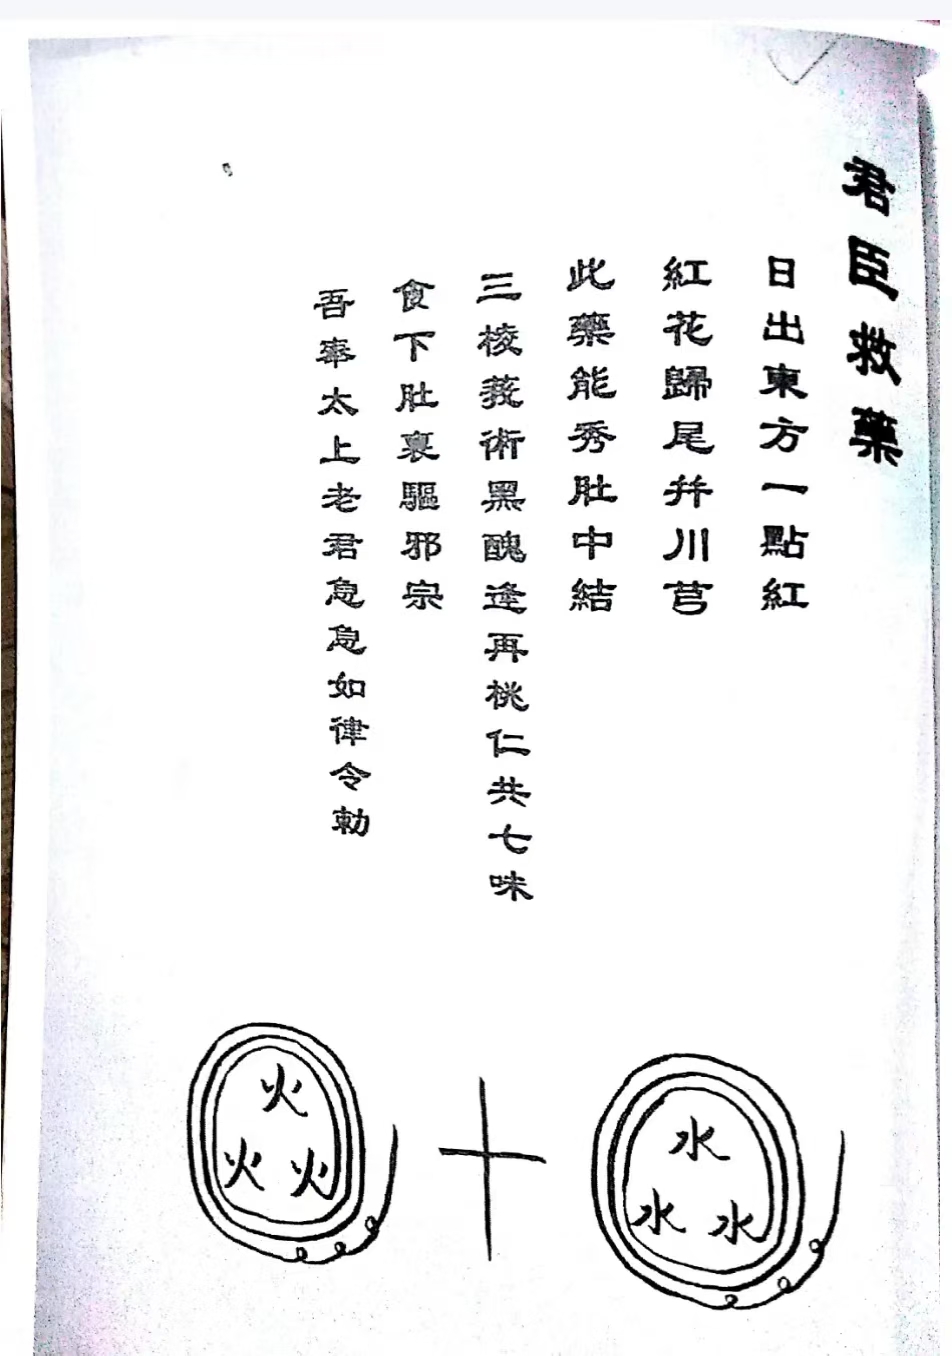 君臣救藥
日出東方一點紅
紅花歸尾并川芎
此藥能秀肚中結
三棱莪術黑醜逢再桃仁共七味
食下肚裏驅邪宗
吾奉太上老君急急如律令勅
火
火火
十
水
水水